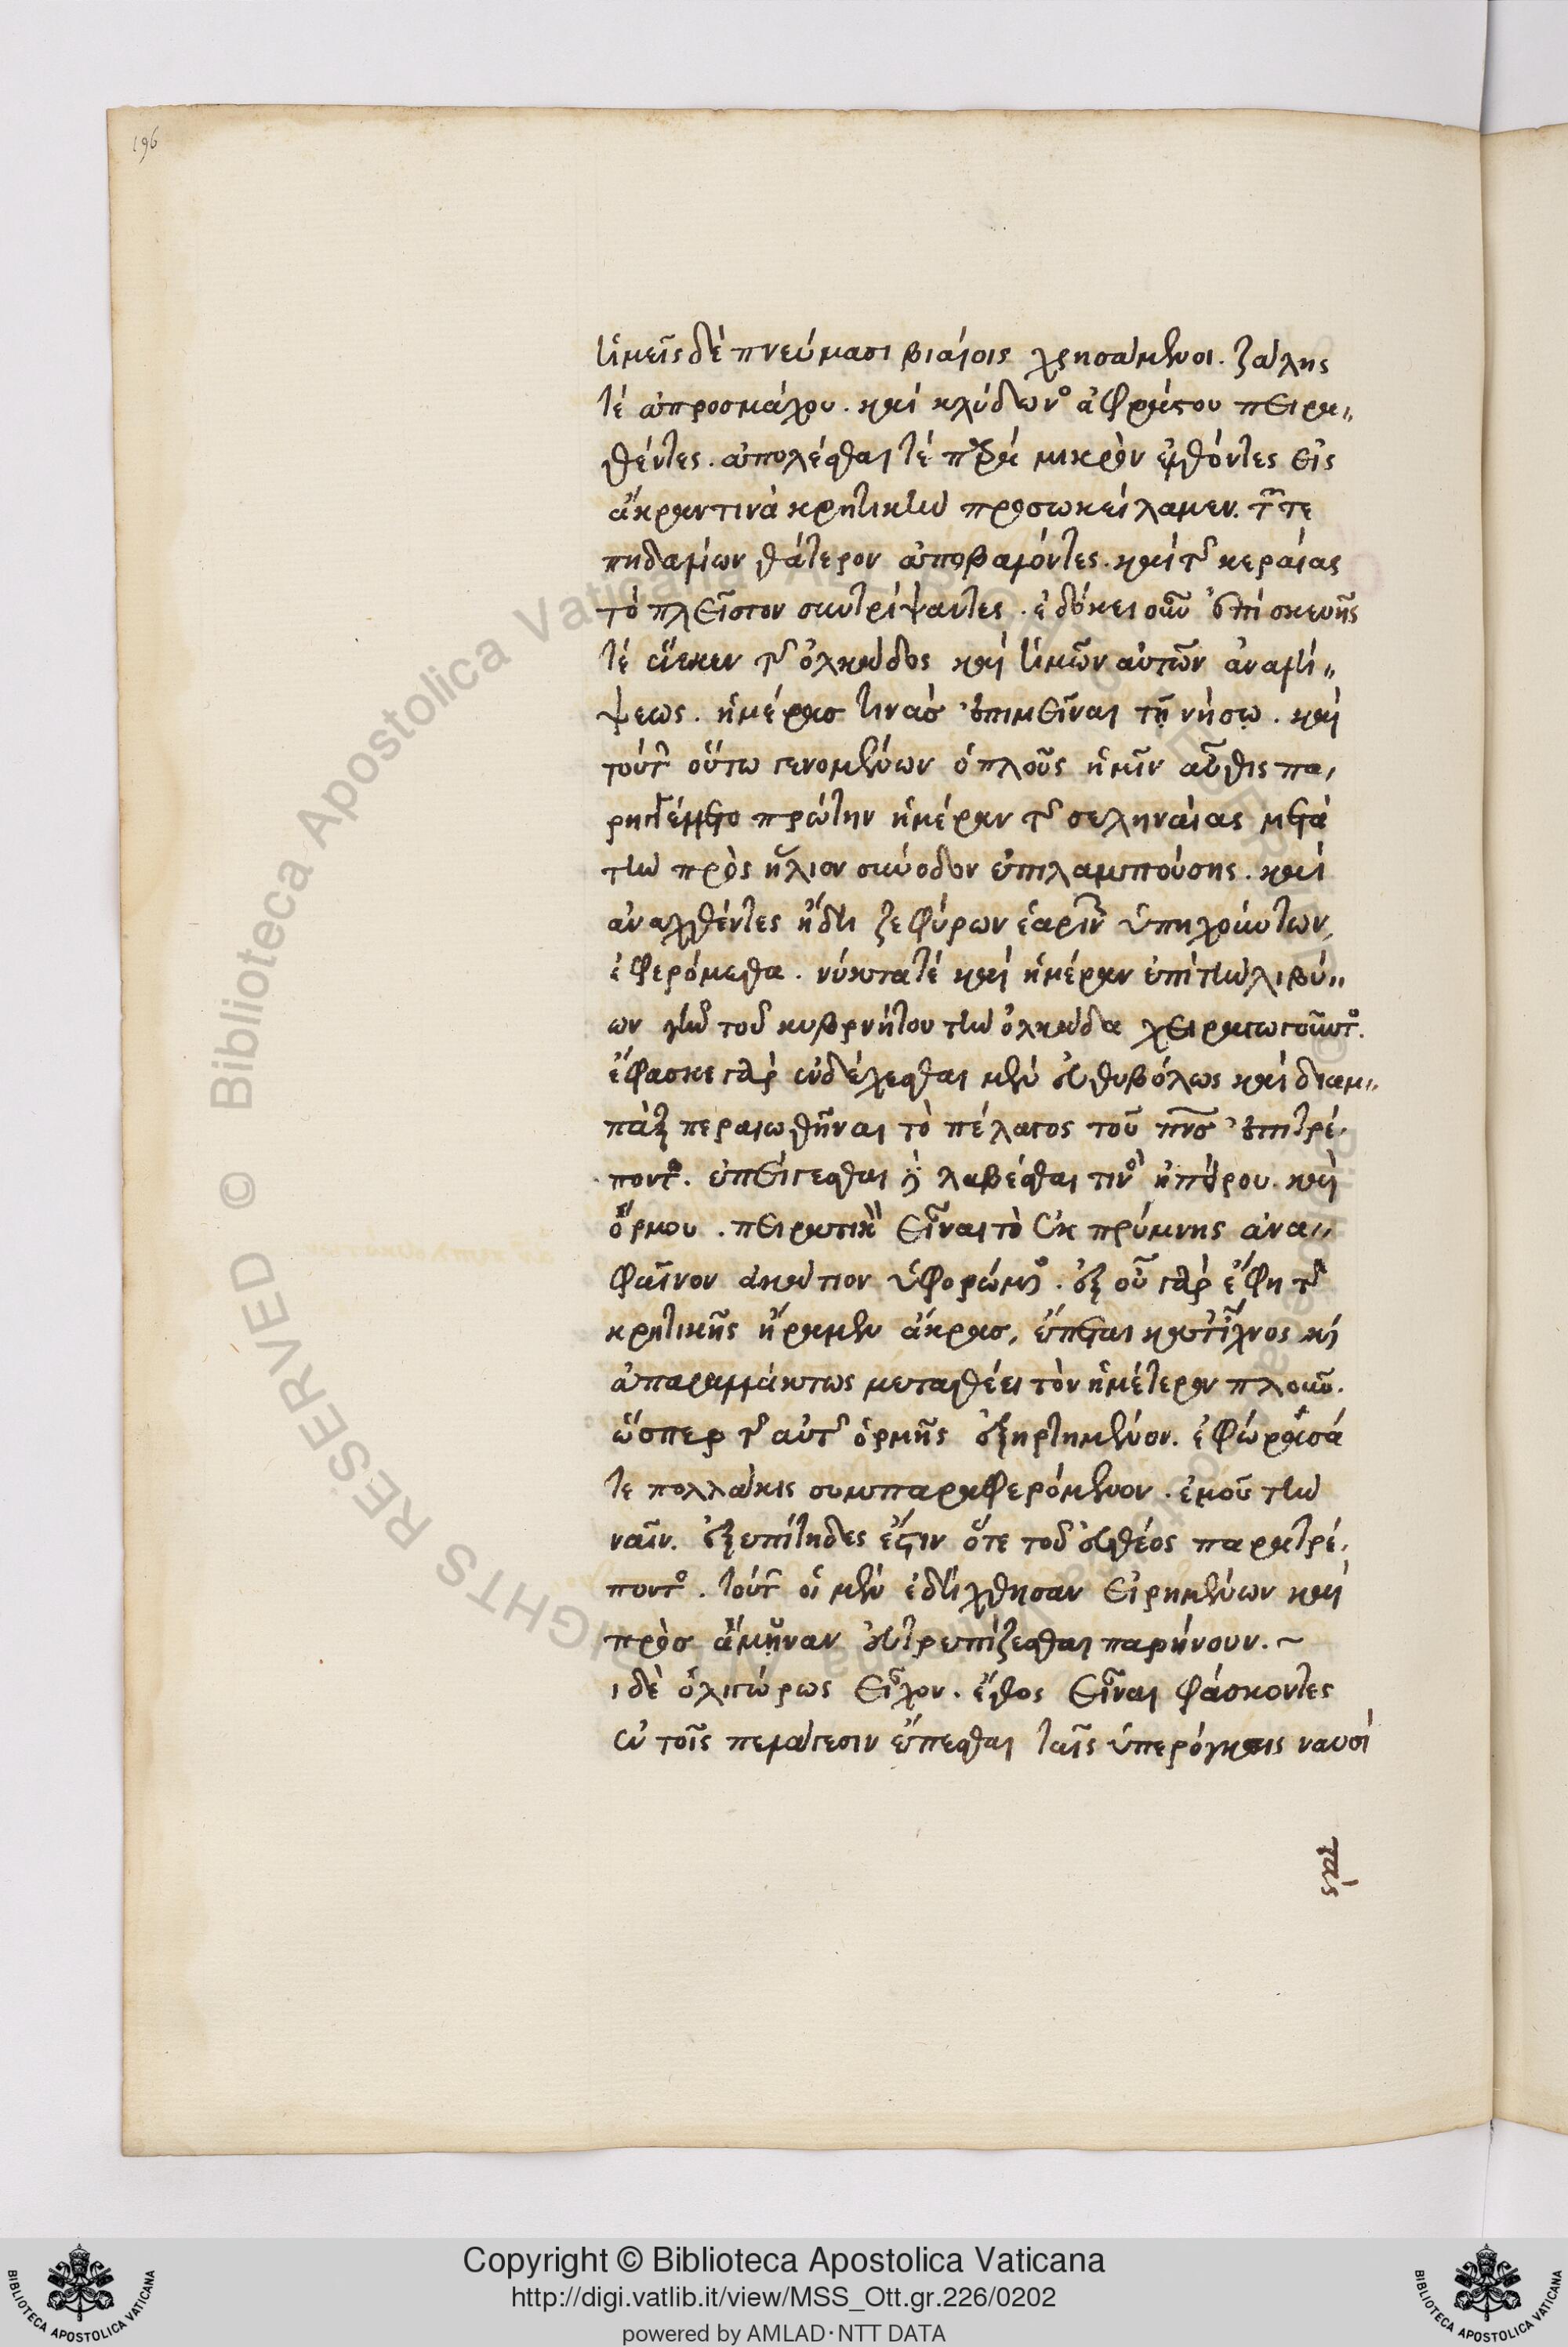 196
ἡμεῖς δὲ πνεύμασι βιαίοις χρησάμενοι. ζάλης
τὲ ἀπροσμάχου. καὶ κλύδωνος ἀφράστου πειρα„
θέντες. ἀπολέσθαι τὲ παρὰ μικρὸν ἐλθόντες εἰς
ἄκραν τινὰ κρητικὴν προσωκείλαμεν. τῶν τε
πηδαλίων θάτερον ἀποβαλόντες. καὶ τῆς κεραίας
τὸ πλεῖστον συντρίψαντες. ἐδόκει οὖν ἐπισκευῆς
τὲ εἵνεκεν τῆς ὁλκάδος καὶ ἡμῶν αὐτῶν ἀναλή„
ψεως. ἡμέρας τινὰς ἐπιμεῖναι τῇ νήσῳ. καὶ
τούτων οὕτω γενομένων ὁ πλοῦς ἡμῖν αὖθις πα,
ρηγγέλλετο πρώτην ἡμέραν τῆς σεληναίας μετὰ
τὴν πρὸς ἥλιον σύνοδον ἐπιλαμπούσης. καὶ
ἀναχθέντες ἤδη ζεφύρων ἐαρινῶν ὑπηχούντων,
ἐφερόμεθα. νύκτα τὲ καὶ ἡμέραν ἐπὶ τὴν λιβύ„
ων γῆν τοῦ κυβερνήτου τὴν ὁλκάδα χειραγωγοῦντος.
ἔφασκε γὰρ ἐνδέχεσθαι μὲν εὐθυβόλως καὶ διαμ„
πὰξ περαιωθῆναι τὸ πέλαγος τοῦ πνς ἐπιτρέ,
ποντος. ἐπείγεσθαι δὲ λαβέσθαι τινὸς ἠπείρου. καὶ
ὅρμου. πειρατικὸν εἶναι τὸ ἐκ πρύμνης ἀνα„
φαῖνον ἀκάτιον ὑφορώμενος. ἐξ οὗ γὰρ ἔφη τῆς
κρητικῆς ἤραμεν ἄκρας, ἕπεται κατ' ἴχνος καὶ
ἀπαραλλάκτως μεταθέει τὸν ἡμέτερον πλοῦν.
ὥσπερ τῆς αὐτῆς ὁρμῆς ἐξηρτημένον. ἐφώρασά
τε πολλάκις συμπαραφερόμενον. ἐμοῦ τὴν
ναῦν. ἐξεπίτηδες ἔστιν ὅτε τοῦ εὐθέος παρατρέ,
ποντος. τούτων οἱ μὲν ἐδήχθησαν εἰρημένων καὶ
πρὸς ἄμυναν εὐτρεπίζεσθαι παρῄνουν. ~
ι δὲ ὀλιγώρως εἶχον. ἔθος εἶναι φάσκοντες
ἐν τοῖς πελάγεσιν ἕπεσθαι ταῖς ὑπερόγκοις ναυσὶ
τὰς
Copyright © Biblioteca Apostolica Vaticana
http://digi.vatlib.it/view/MSS_Ott.gr.226/0202
powered by AMLAD·NTT DATA
BIBLIOTECA APOSTOLICA VATICANA
BIBLIOTECA APOSTOLICA VATICANA